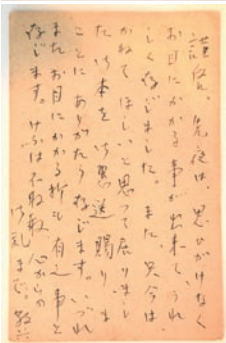 謹啓、先夜は、思ひがけなく
お目にかかる事が出来て、うれ
しく存じました。また、只今は、
かねてほしいと思って居りまし
た御本を御恵送賜りま
ことにありがたう存じます。いづれ
またお目にかかる折も有之事と
存じます。けふは不取敢心からの
御礼まで。敬具